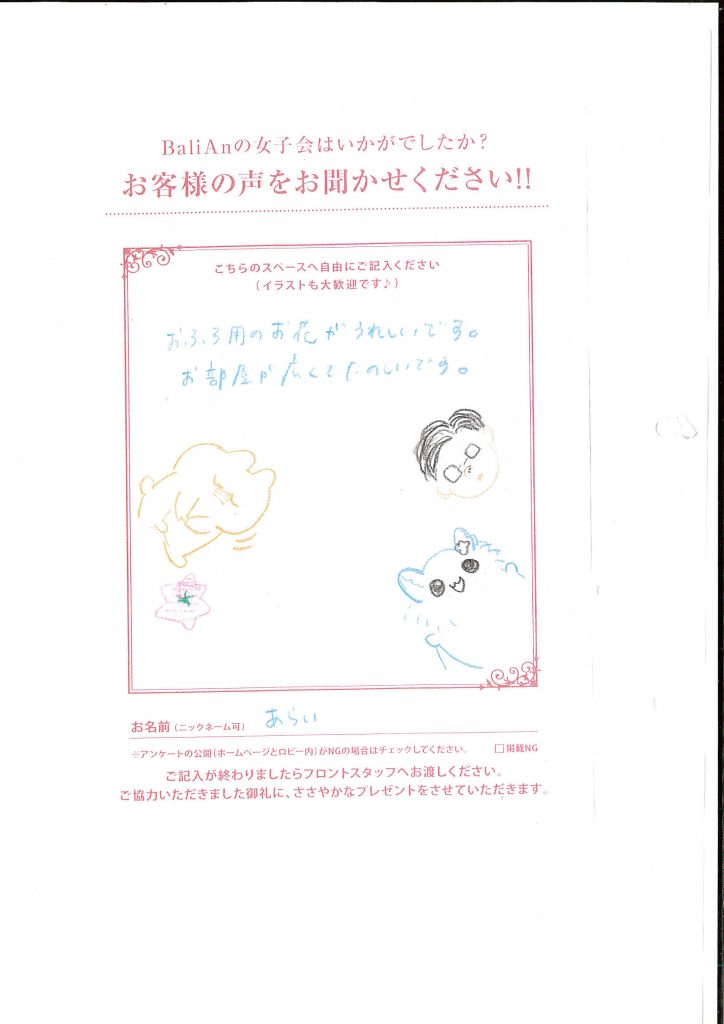 BaliAnの女子会はいかがでしたか?
お客様の声をお聞かせください!!
こちらのスペースへ自由にご記入ください
(イラストも大歓迎です♪)
おふろ用のお花がうれしいです。
お部屋が広くてたのしいです。
お名前(ニックネーム可) あらい
※アンケートの公開(ホームページとロビー内)がNGの場合はチェックしてください。 □掲載NG
ご記入が終わりましたらフロントスタッフへお渡しください。
ご協力いただきました御礼に、ささやかなプレゼントをさせていただきます。